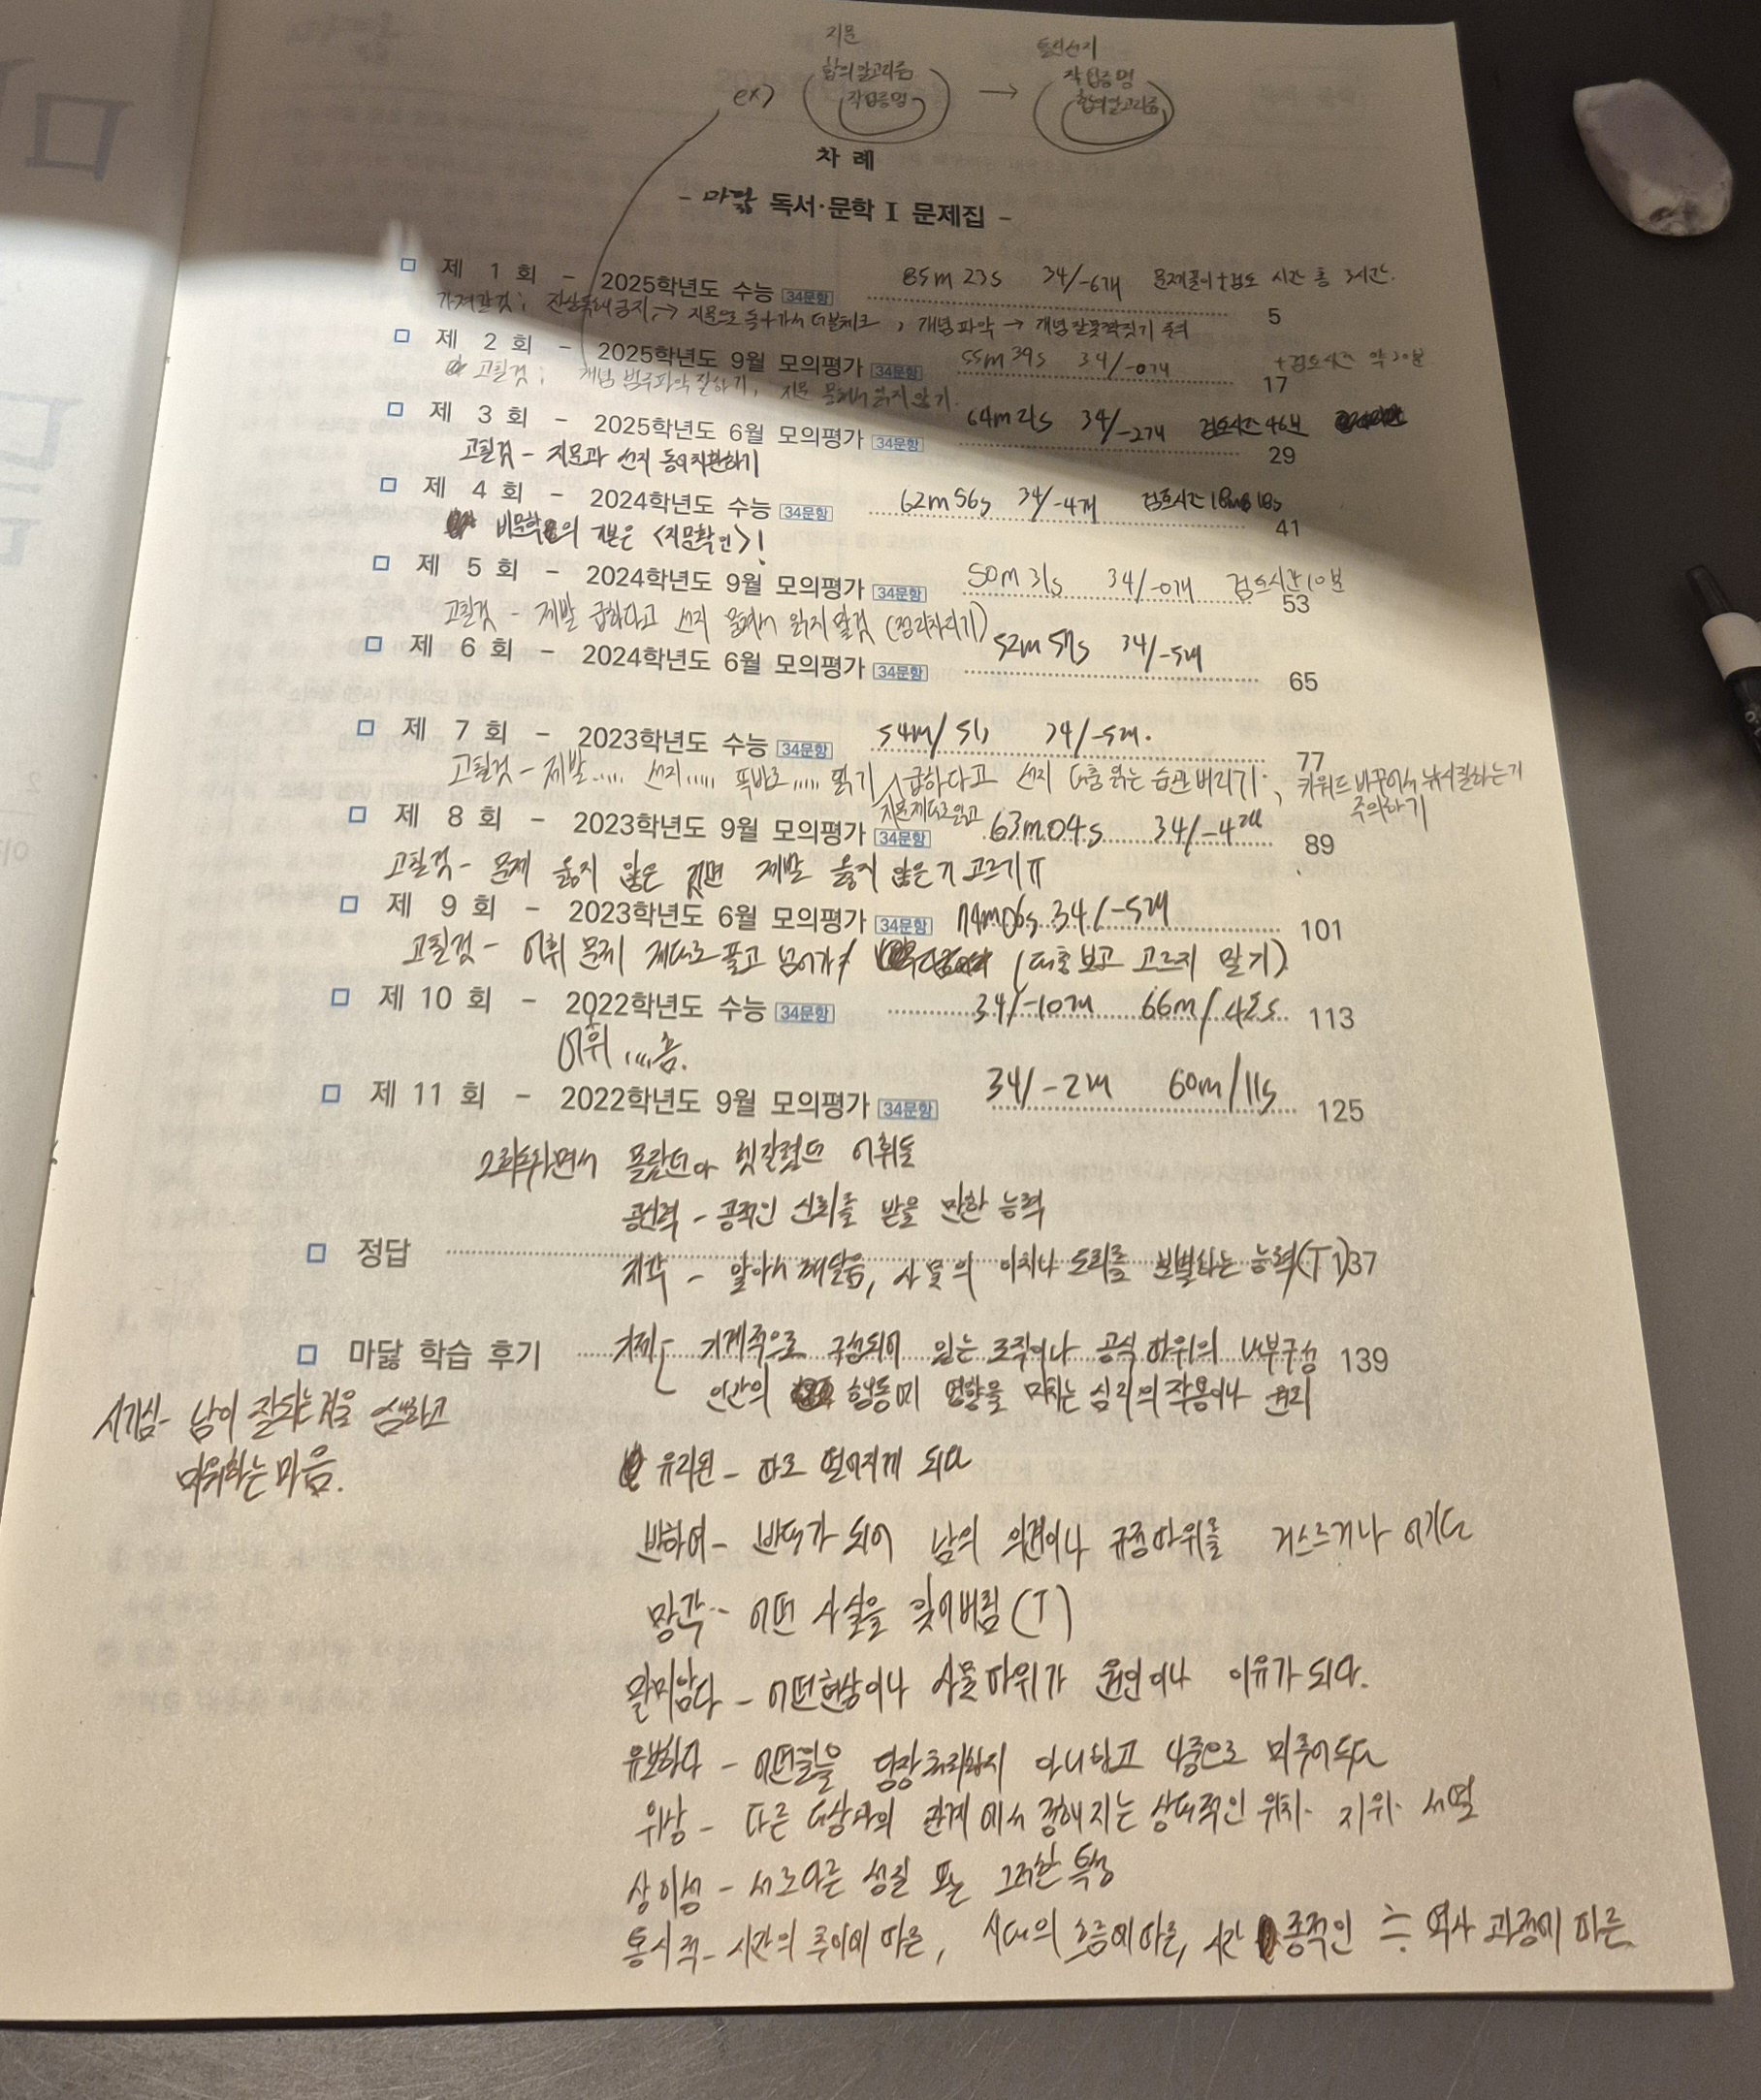 지문
합의알고리즘
작업증명
ex)
→
틀린선지
작업증명
합의알고리즘
차 례
- 마닳 독서·문학 I 문제집 -
제 1 회 - 2025학년도 수능 34문항 85m 23s 34/-6개 문제풀이+검토 시간 총 3시간. 5
가져간것; 진상독해금지, → 지문으로 돌아가서 더블체크, 개념파악 → 개념잘못짝짓기 주의
제 2 회 - 2025학년도 9월 모의평가 34문항 55m 39s 34/-0개 +검토시간 약 30분 17
고칠것; 개념 범주파악 잘하기, 지문 몰려서 읽지 않기.
제 3 회 - 2025학년도 6월 모의평가 34문항 64m 21s 34/-2개 검토시간 46분 29
고칠것 - 지문과 선지 동의치환하기
제 4 회 - 2024학년도 수능 34문항 62m 56s 34/-4개 검토시간 18s 41
비문학의 기본은 <지문확인>!
제 5 회 - 2024학년도 9월 모의평가 34문항 50m 31s 34/-0개 검토시간 10분 53
고칠것 - 제발 급하다고 선지 몰려서 읽지말것 (정리차리기)
제 6 회 - 2024학년도 6월 모의평가 34문항 52m 57s 34/-5개 65
제 7 회 - 2023학년도 수능 34문항 54m/51s 34/-5개. 77
고칠것 - 제발..... 선지..... 똑바로..... 읽기, 급하다고 선지 대충 읽는 습관 버리기., 키워드 바꾸어서 낚시질하는거
지문제대로읽고
주의하기
제 8 회 - 2023학년도 9월 모의평가 34문항 63m04s 34/-4개 89
고칠것 - 문제 옳지 않은 것이면 제발 옳지 않은거 고르기ㅠ
제 9 회 - 2023학년도 6월 모의평가 34문항 74m06s 34/-5개 101
고칠것 - 어휘 문제 제대로 풀고 넘어가기 (대충보고 고르지 말기)
제 10 회 - 2022학년도 수능 34문항 34/-10개 66m/42s 113
어휘 ,,,,흠.
제 11 회 - 2022학년도 9월 모의평가 34문항 34/-2개 60m/11s 125
2회독하면서 몰랐던or 헷갈렸던 어휘들
공신력 - 공적인 신뢰를 받을 만한 능력
정답 137
지각 - 알아서 깨달음, 사물의 이치나 도리를 분별하는 능력(T)
마닳 학습 후기 139
기제 - 기계적으로 구성되어 있는 조직이나 공식 따위의 내부구성
인간의 행동에 영향을 미치는 심리의 작용이나 원리
시기심 - 남이 잘되는것을 샘하고
미워하는 마음.
유리된 - 따로 떨어지게 되다
반하여 - 반대가 되어 남의 의견이나 규정따위를 거스르거나 어기다
망각 - 어떤 사실을 잊어버림 (T)
말미암다 - 어떤현상이나 사물따위가 원인이나 이유가 되다.
유보하다 - 어떤일을 당장처리하지 아니하고 나중으로 미루어두다
위상 - 다른 대상과의 관계에서 정해지는 상대적인 위치· 지위· 서열
상이성 - 서로다른 성질 또는 그러한 특성
통시적 - 시간의 추이에 따른, 시대의 흐름에 따른, 시간 종적인 ≒ 역사 과정에 따른